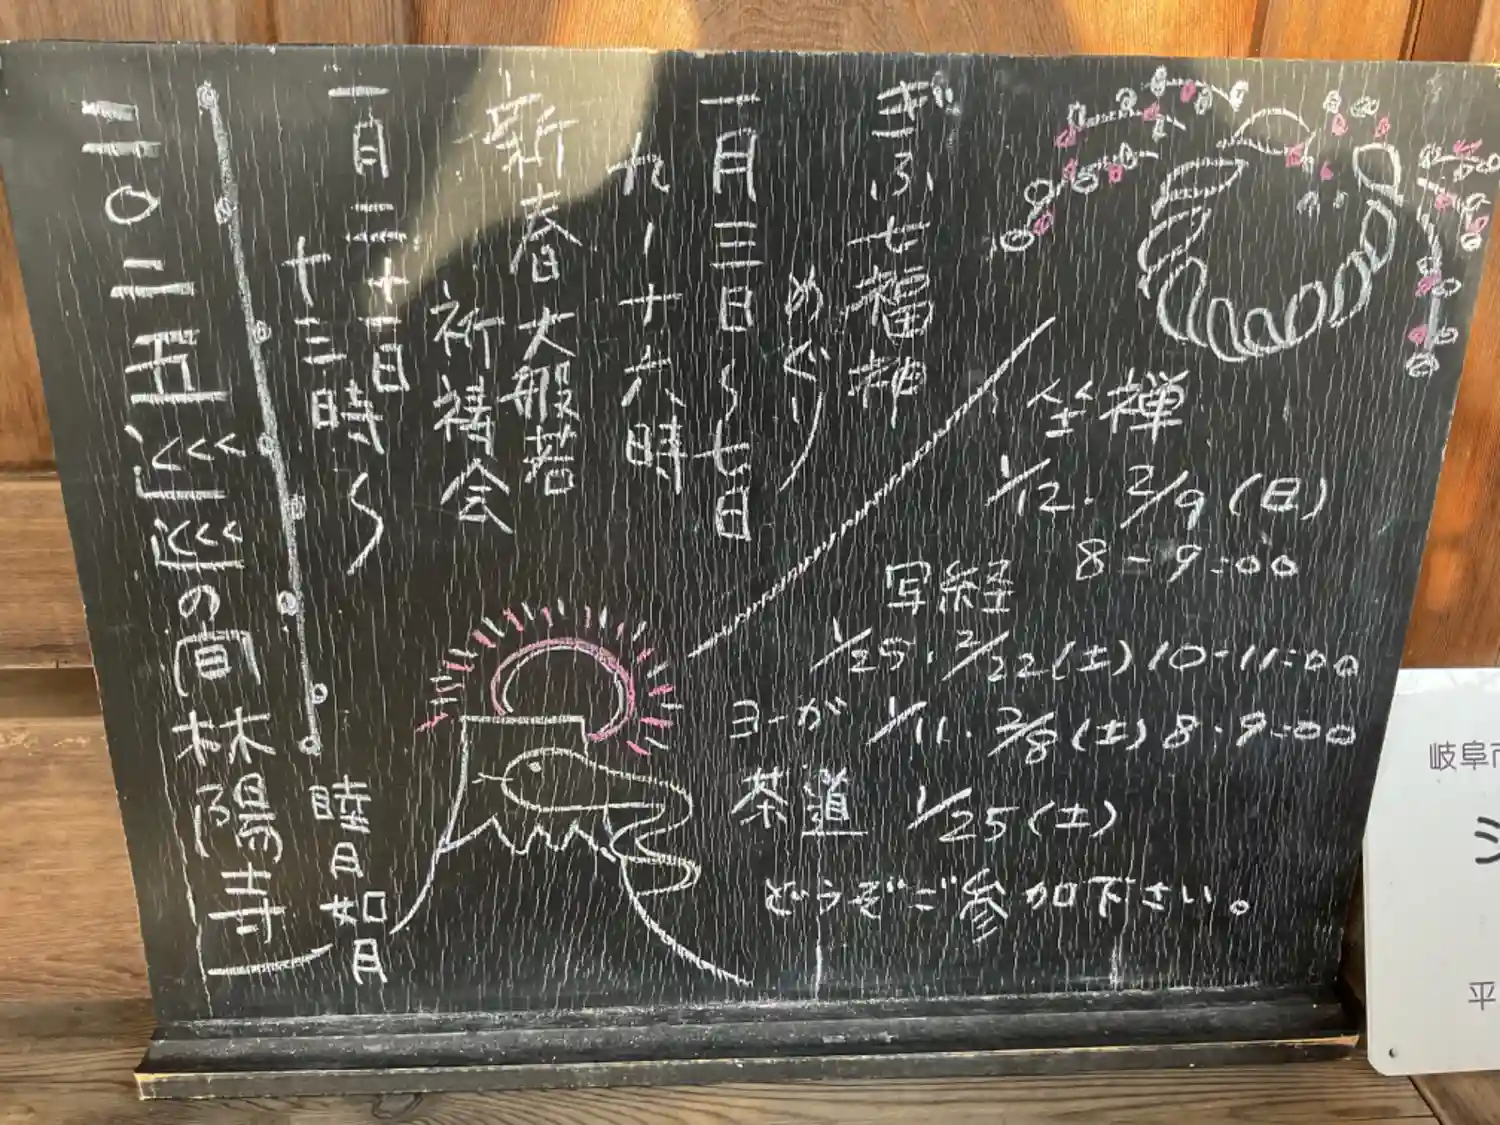 ぎふ七福神
めぐり
一月三日〜七日
九ー十六時
新春大般若
祈祷会
一月二十一日
十三時〜
坐禅
1/12・2/9(日)
8-9:00
写経
1/25・2/22(土)10-11:00
ヨーガ 1/11・2/8(土)8-9:00
茶道 1/25(土)
どうぞご参加下さい。
睦月如月
二〇二五巡巡の間林陽寺
岐阜市
平